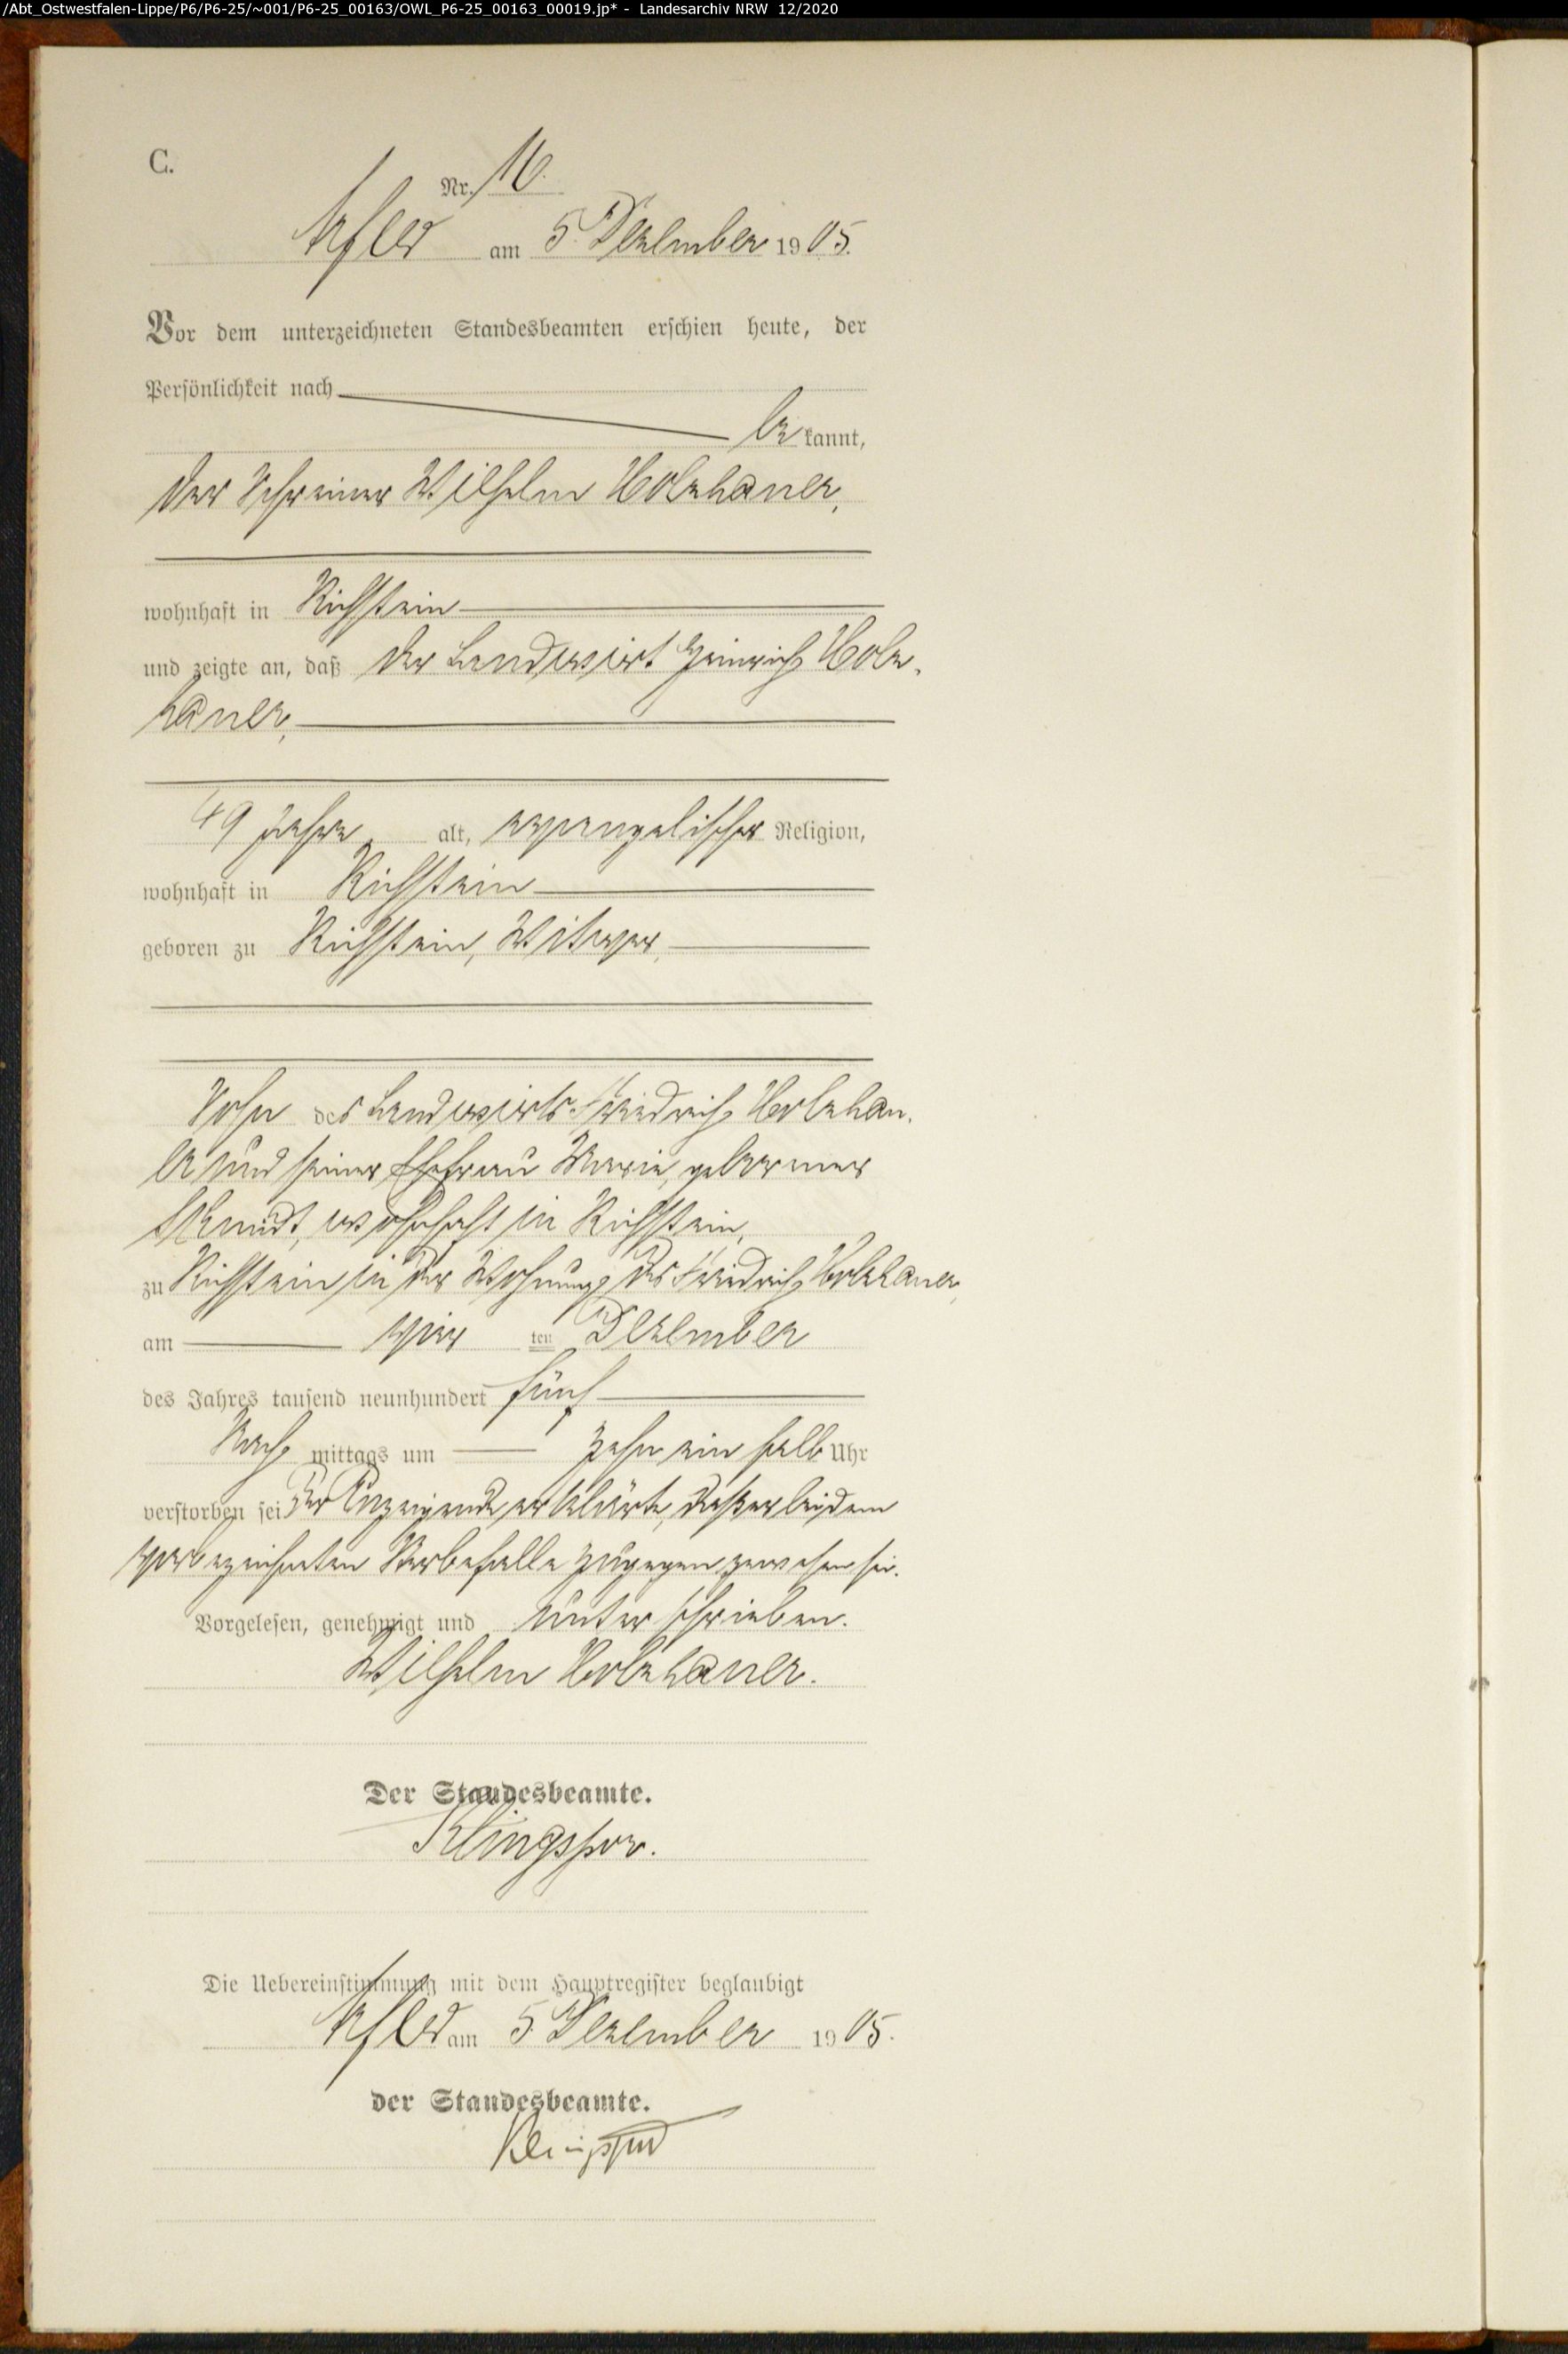 /Abt_Ostwestfalen-Lippe/P6/P6-25/~001/P6-25_00163/OWL_P6-25_00163_00019.jp* - Landesarchiv NRW 12/2020
C.
Nr. 16.
Arfeld am 5. Dezember 1905.
Vor dem unterzeichneten Standesbeamten erschien heute, der
Persönlichkeit nach
be kannt,
der Schreiner Wilhelm Holzhauer,
wohnhaft in Richstein
und zeigte an, daß der Landwirt Heinrich Holz-
hauer,
49 Jahre alt, evangelischer Religion,
wohnhaft in Richstein
geboren zu Richstein, Witwer,
Sohn des Landwirts Friedrich Holzhau-
er und seiner Ehefrau Marie, geborener
wohnhaft in Richstein,
zu Richstein in der Wohnung des Friedrich Holzhauer,
am vier ten Dezember
des Jahres tausend neunhundert fünf
Nach mittags um zehn ein halb Uhr
verstorben sei. Der Anzeigende erklärte, daß er bei dem
vorbezeichneten Sterbefalle zugegen gewesen sei.
Vorgelesen, genehmigt und unterschrieben.
Wilhelm Holzhauer.
Der Standesbeamte.
Klingspor.
Die Uebereinstimmung mit dem Hauptregister beglaubigt
Arfeld am 5. Dezember 1905.
der Standesbeamte.
Klingspor